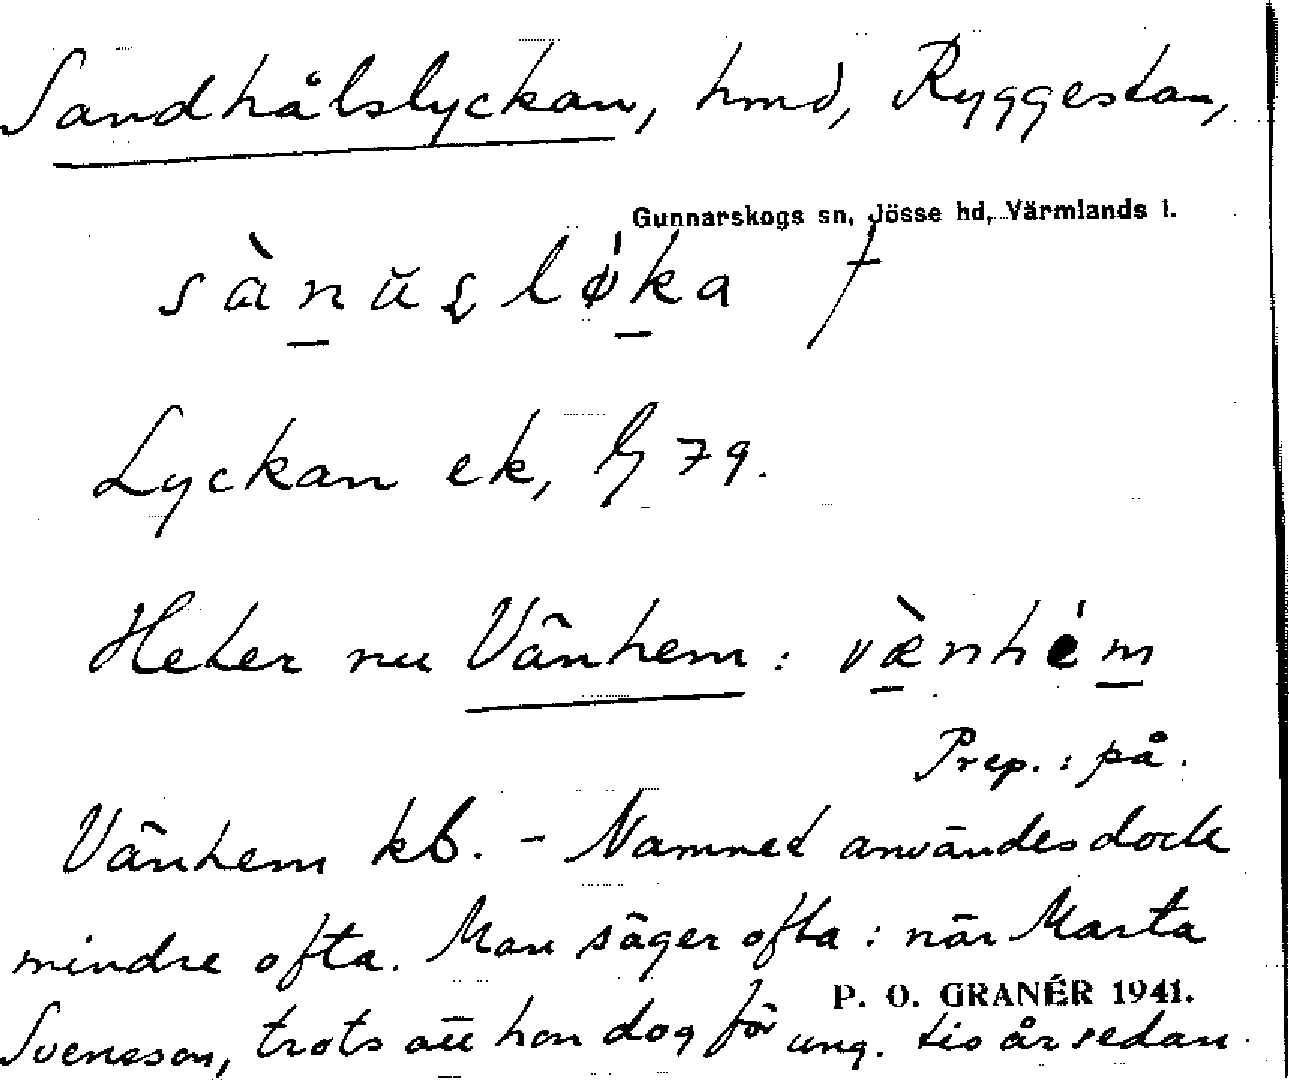 Sandhålslyckan, hmd, Ryggestan,
Gunnarskogs sn, Jösse hd, Värmlands l.
Lyckan ek, G 79.
Heter nu Vänhem: vænhém
Prep.: på.
Vänhem kb. - Namnet användes dock
mindre ofta. Man säger ofta: när Marta
Svensson, trots att hon dog för ung. tio år sedan.
P. O. GRANÉR 1941.